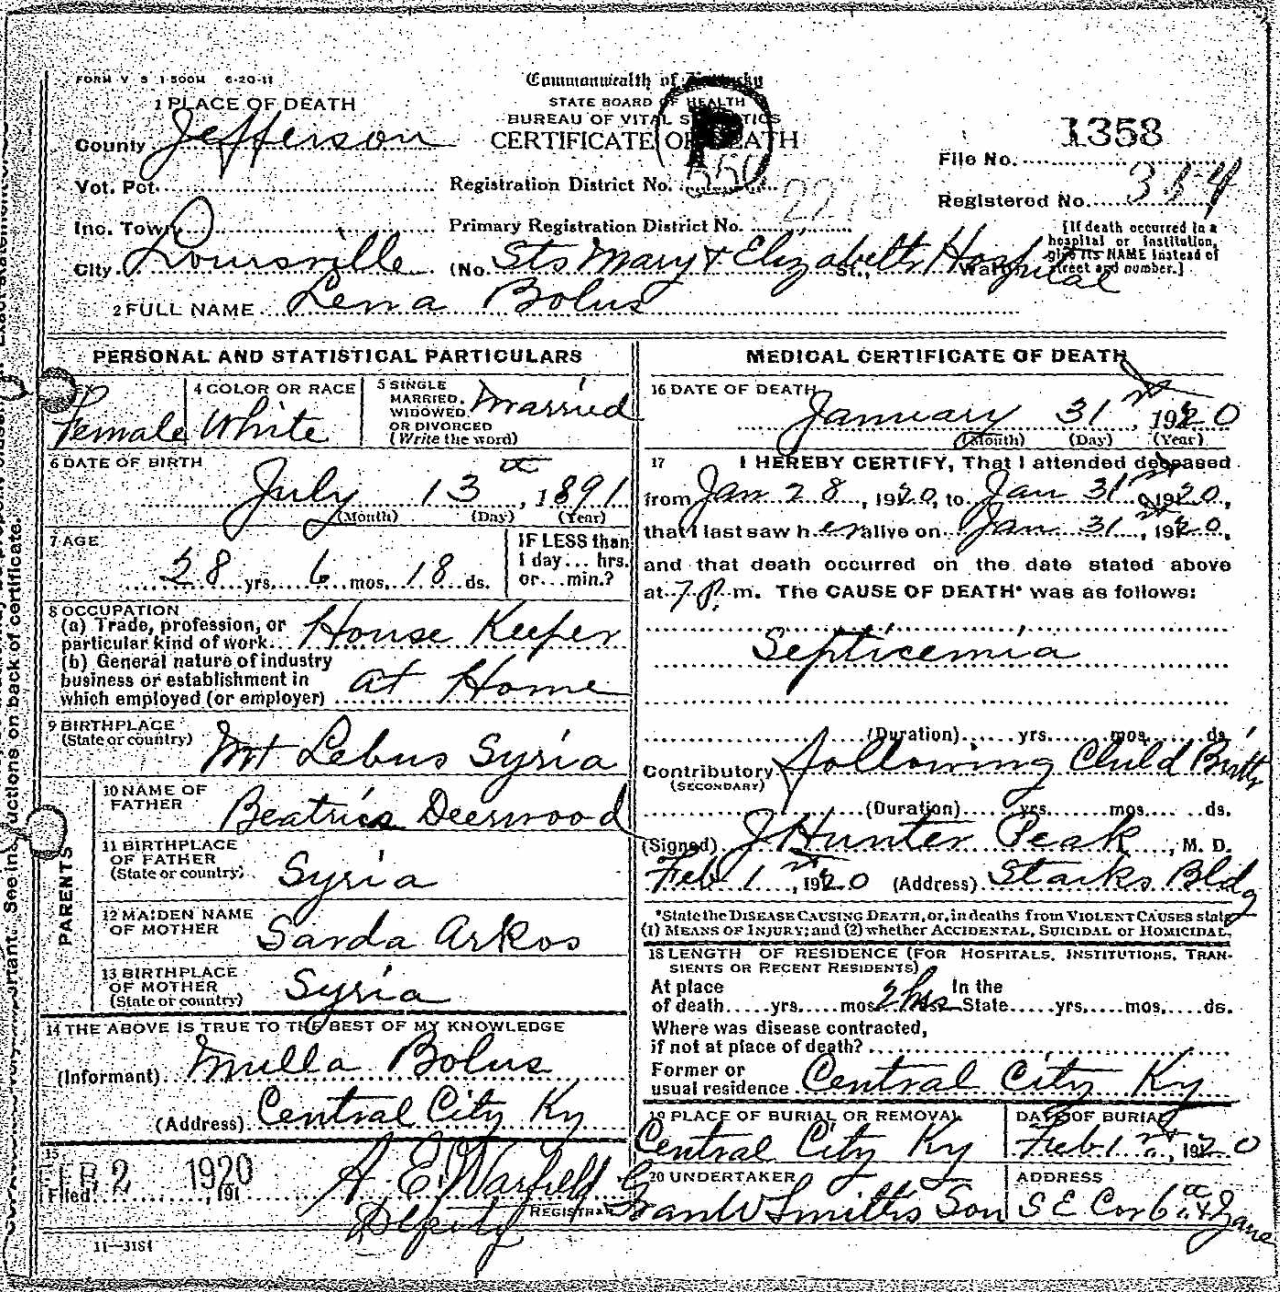 FORM V S 1-500M 6-20-11
Commonwealth of Kentucky
STATE BOARD OF HEALTH
BUREAU OF VITAL STATISTICS
CERTIFICATE OF DEATH
P
1 PLACE OF DEATH
County Jefferson
Vot. Pct.
Inc. Town
City Louisville
Registration District No. 550
Primary Registration District No.
(No. Sts Mary & Elizabeth Hospital St., Ward)
File No. 1358
Registered No. 354
[If death occurred in a hospital or institution, give its NAME instead of street and number.]
2 FULL NAME Lena Bolus
PERSONAL AND STATISTICAL PARTICULARS
Female
4 COLOR OR RACE
White
5 SINGLE MARRIED, WIDOWED OR DIVORCED (Write the word)
Married
6 DATE OF BIRTH
July 13 th, 1891
(Month) (Day) (Year)
7 AGE
28 yrs. 6 mos. 18 ds.
IF LESS than 1 day... hrs. or...min.?
8 OCCUPATION
(a) Trade, profession, or particular kind of work House Keeper
(b) General nature of industry business or establishment in which employed (or employer) at Home
9 BIRTHPLACE
(State or country) Mt Lebus Syria
PARENTS
10 NAME OF FATHER Beatrica Deerwood
11 BIRTHPLACE OF FATHER (State or country) Syria
12 MAIDEN NAME OF MOTHER Sarda Arkos
13 BIRTHPLACE OF MOTHER (State or country) Syria
14 THE ABOVE IS TRUE TO THE BEST OF MY KNOWLEDGE
(Informant) Mulla Bolus
(Address) Central City Ky
15
Filed FEB 2 1920, 191
A. E. Warfield
Deputy REGISTRAR
11-3184
MEDICAL CERTIFICATE OF DEATH
16 DATE OF DEATH
January 31 st, 1920
(Month) (Day) (Year)
17 I HEREBY CERTIFY, That I attended deceased
from Jan 28, 1920, to Jan 31 st, 1920,
that I last saw her alive on Jan 31 st, 1920,
and that death occurred on the date stated above
at 7 P. m. The CAUSE OF DEATH* was as follows:
Septicemia
(Duration) yrs. mos. ds.
Contributory following Child Birth
(SECONDARY)
(Duration) yrs. mos. ds.
(Signed) J Hunter Peak, M. D.
Feb 1 st, 1920 (Address) Starks Bldg
*State the DISEASE CAUSING DEATH, or, in deaths from VIOLENT CAUSES state
(1) MEANS OF INJURY; and (2) whether ACCIDENTAL, SUICIDAL OR HOMICIDAL.
18 LENGTH OF RESIDENCE (FOR HOSPITALS, INSTITUTIONS, TRANSIENTS OR RECENT RESIDENTS)
At place of death yrs. mos. 2 hrs In the State yrs. mos. ds.
Where was disease contracted,
if not at place of death?
Former or usual residence Central City Ky
19 PLACE OF BURIAL OR REMOVAL
Central City Ky
DATE OF BURIAL
Feb 1 st, 1920
20 UNDERTAKER
Gran W Smith's Son
ADDRESS
S E Cor 6th &